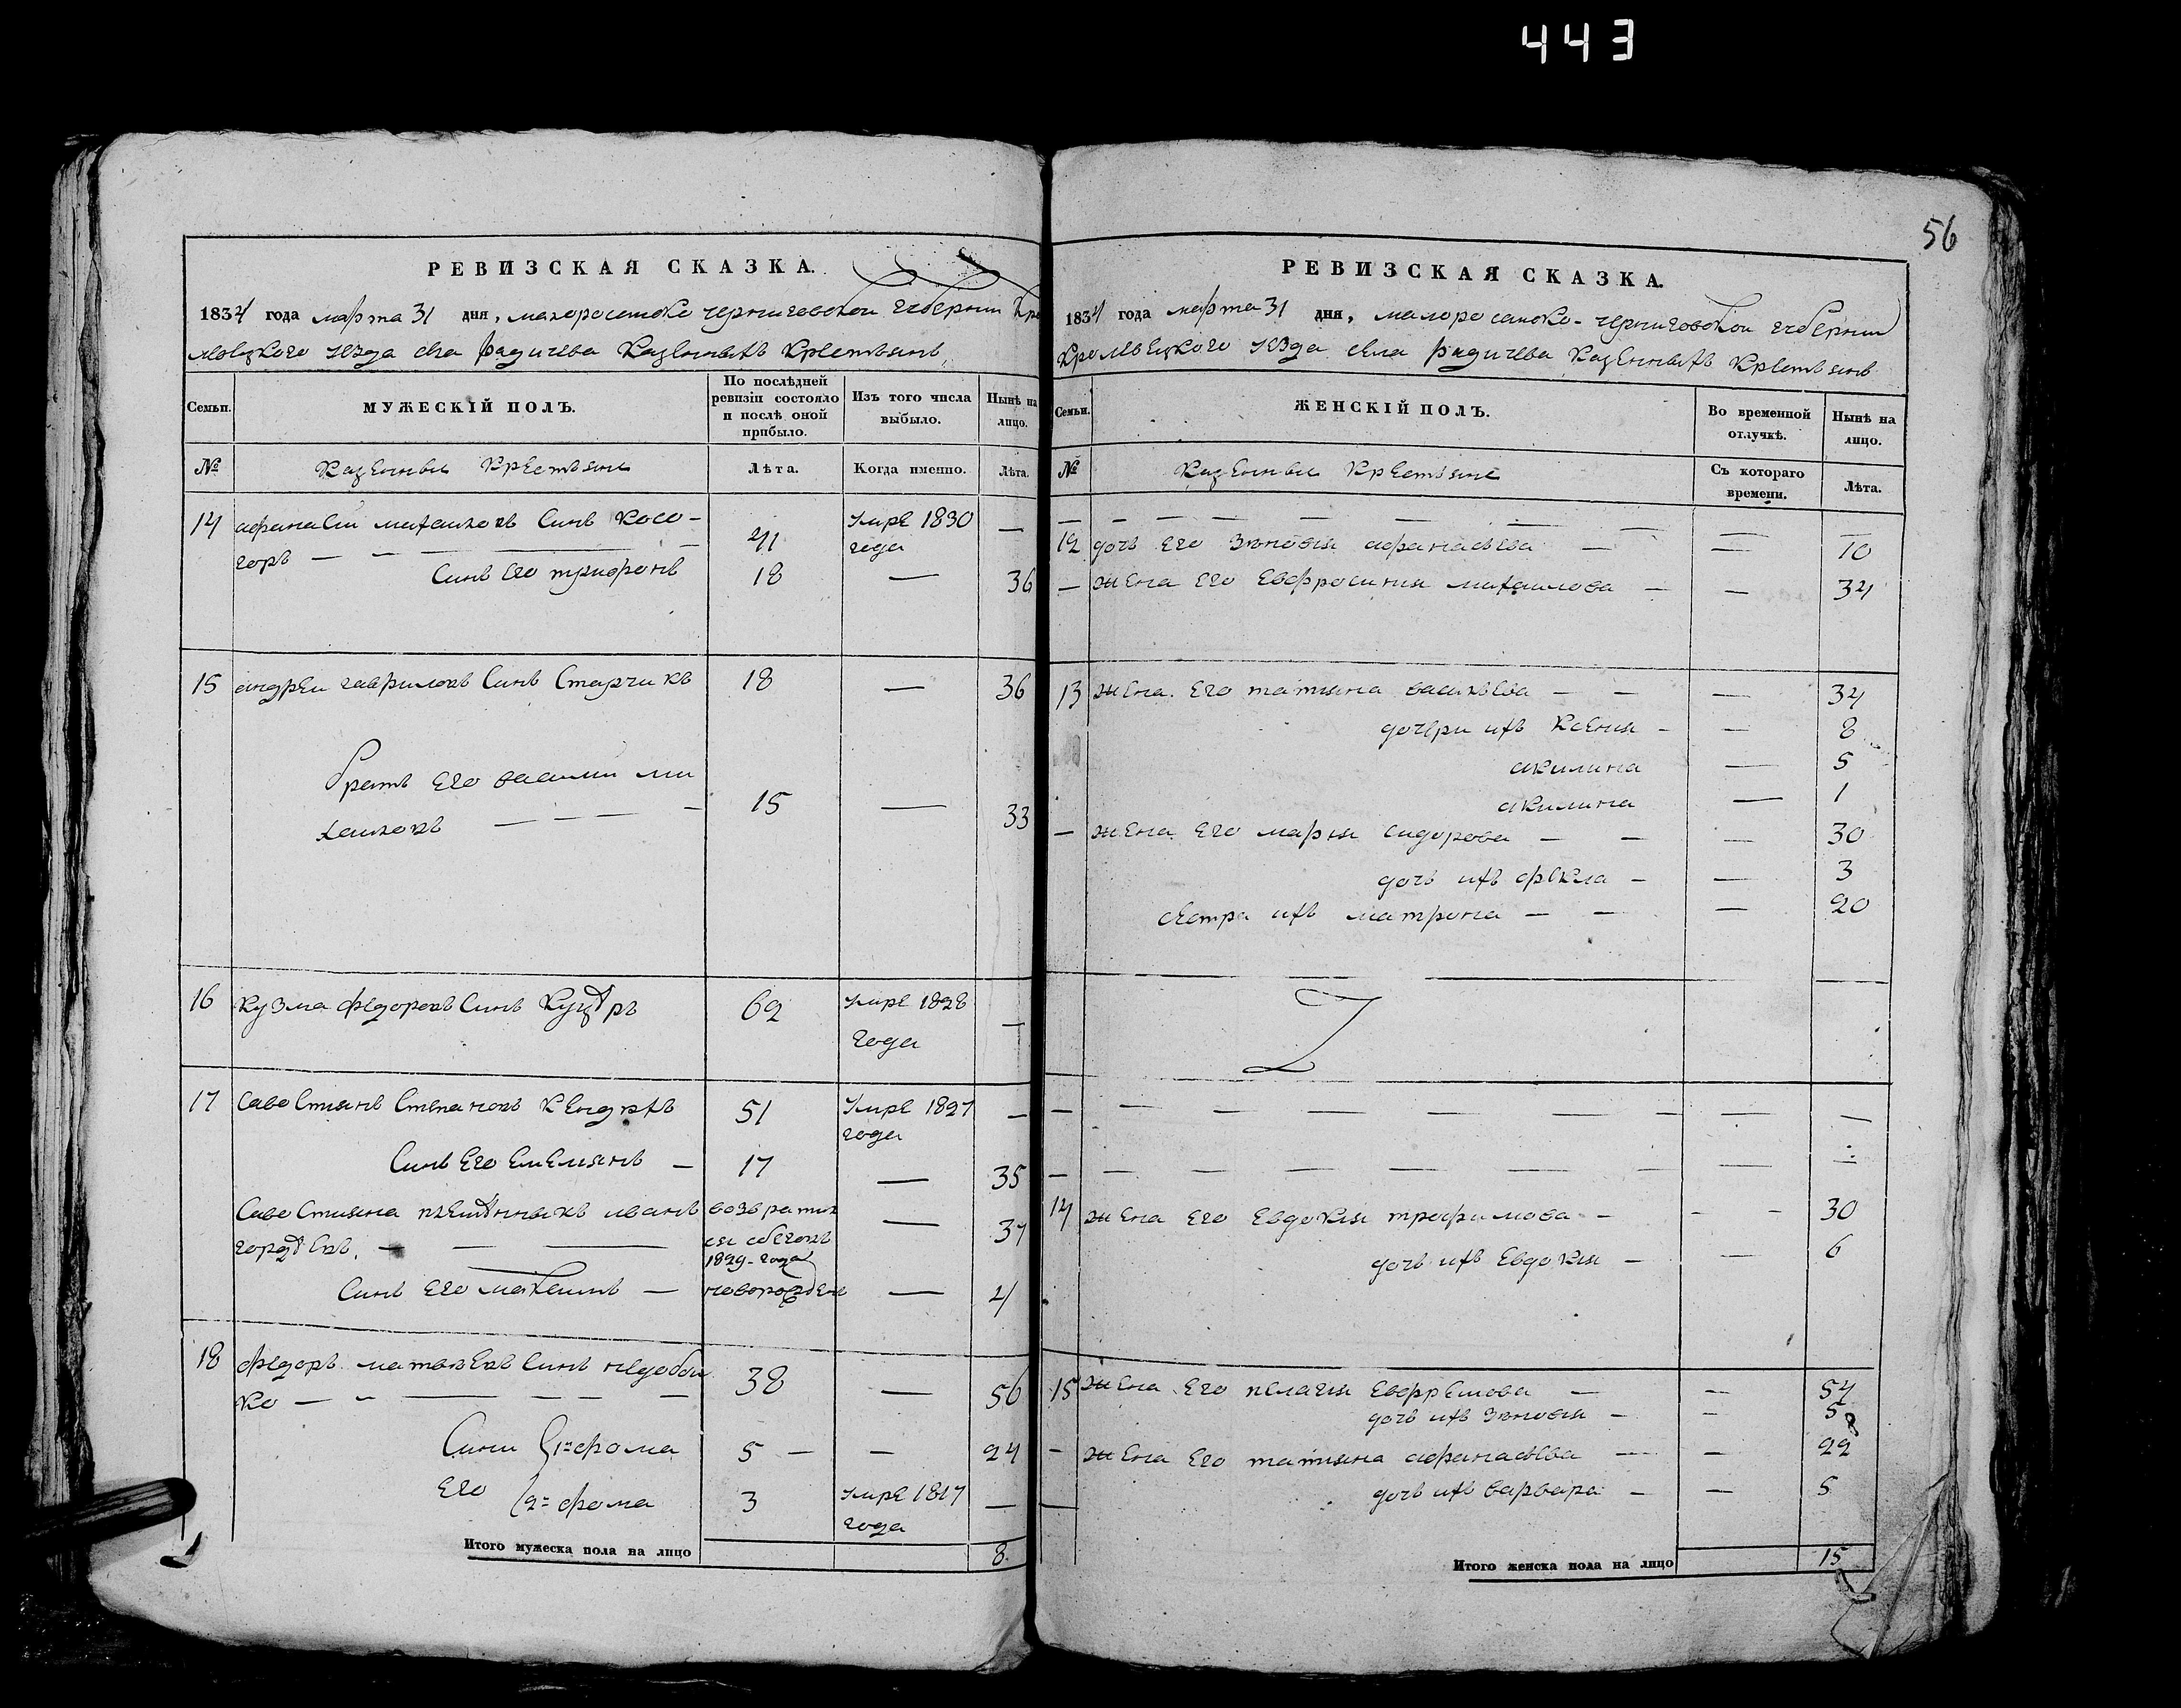 443
56
РЕВИЗСКАЯ СКАЗКА.
1834 года марта 31 дня, малоросийско черниговской губернии Кро
левецкого уезда села радичева Казенныхъ Крестьянъ
Семьи.
МУЖЕСКІЙ ПОЛЪ.
По послѣдней
ревизіи состояло
и послѣ оной
прибыло.
Изъ того числа
выбыло.
Нынѣ на
лицо.
№
Казенныи Крестьяни
Лѣта.
Когда именно.
Лѣта.
14 афанасий михаиловъ Синъ Косо- 41 умре 1830 —
горъ — — — года
Синъ его трифонъ 18 — 36
15 андреи гавриловъ Синъ Старчикъ 18 — 36
братъ его василии ми 15 — 33
хаиловъ — — —
16 кузма федоровъ Синъ 62 умре 1828 —
года
17 Савостиянъ Степановъ 51 умре 1827 —
года
Синъ его емелиянъ — 17 — 35
Савостияна иванъ возврати — 37
ся
1829-года
Синъ его — новорожден — 4
18 федоръ матвеевъ Синъ недобои 38 — 56
ко — — — — —
Сини 1й фома 5 — — 24
его 2й фома 3 умре 1817 —
года
Итого мужеска пола на лицо 8
РЕВИЗСКАЯ СКАЗКА.
1834 года марта 31 дня, малоросийско-черниговской губернии
Кролевецкого уезда села радичева Казенныхъ Крестьянъ
Семьи.
ЖЕНСКІЙ ПОЛЪ.
Во временной
отлучкѣ.
Нынѣ на
лицо.
№
Казенныи Крестьяне
Съ котораго
времени.
Лѣта.
— — — — — — — — —
12 дочъ его зѣновия афанасьева — — 10
— жена его евфросиния михаилова — — 34
13 жена его татияна васильева — — — 34
дочери ихъ ксения — — 8
акилина — 5
акилина — 1
— жена его мария сидорова — — — 30
дочъ ихъ фекла — — 3
сестра ихъ матрона — — — 20
— — — — — — — — — —
— — — — — — — — — —
14 жена его евдокия трофимова — — — 30
дочъ ихъ евдокия — — 6
15 жена его пелагия евфремова — — 54
дочъ ихъ зѣновия — — 5
— жена его татияна афанасьева — — 22
дочъ ихъ варвара — — 5
—
Итого женска пола на лицо 15